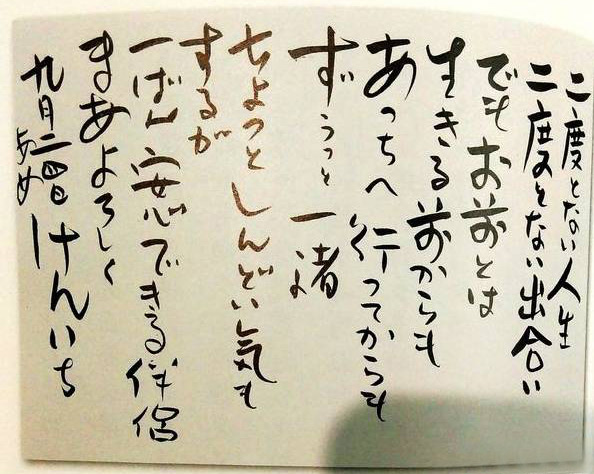 二度とない人生
二度とない出合い
でもお前とは
生きる前からも
あっちへ行ってからも
ずうっと一緒よ
ちょっとしんどい気も
するが
一ばん安心できる伴侶
まあよろしく
九月二四日
あめ
けんいち